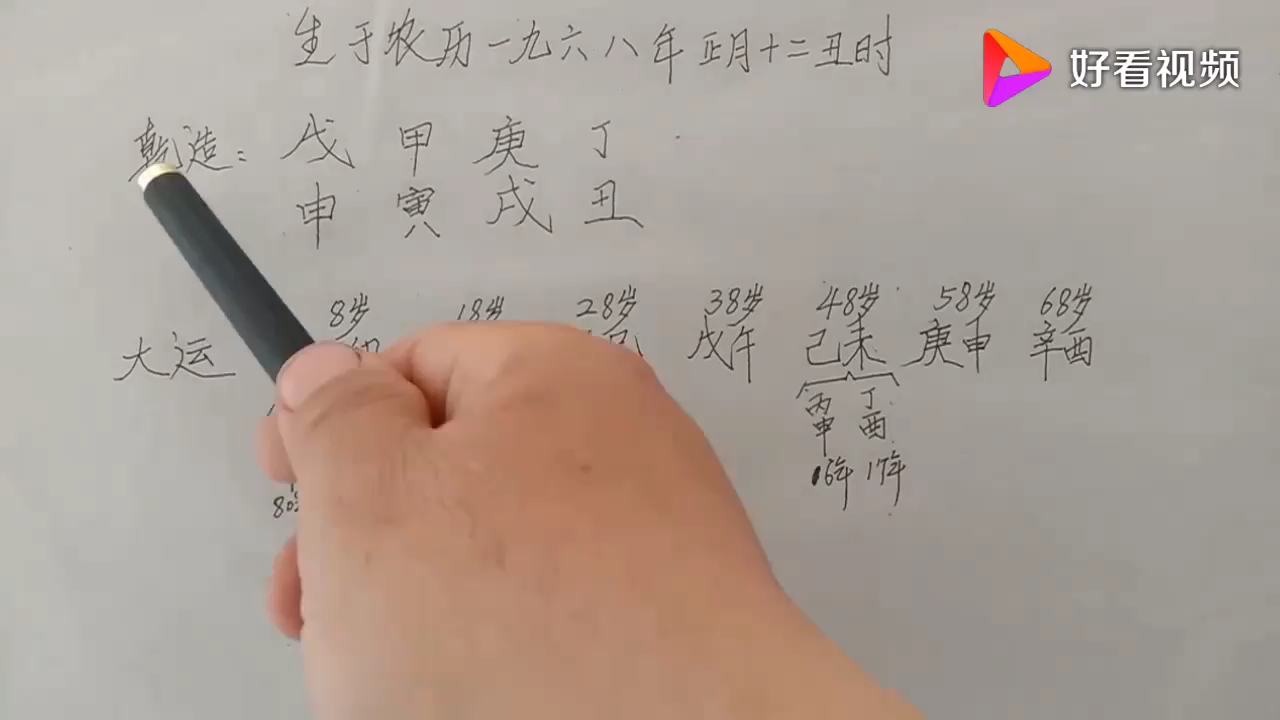 生于农历一九六八年正月十二丑时
好看视频
乾造: 戊 甲 庚 丁
申 寅 戌 丑
8岁 18岁 28岁 38岁 48岁 58岁 68岁
大运 戊午 己未 庚申 辛酉
丙申 丁酉
16年 17年
80